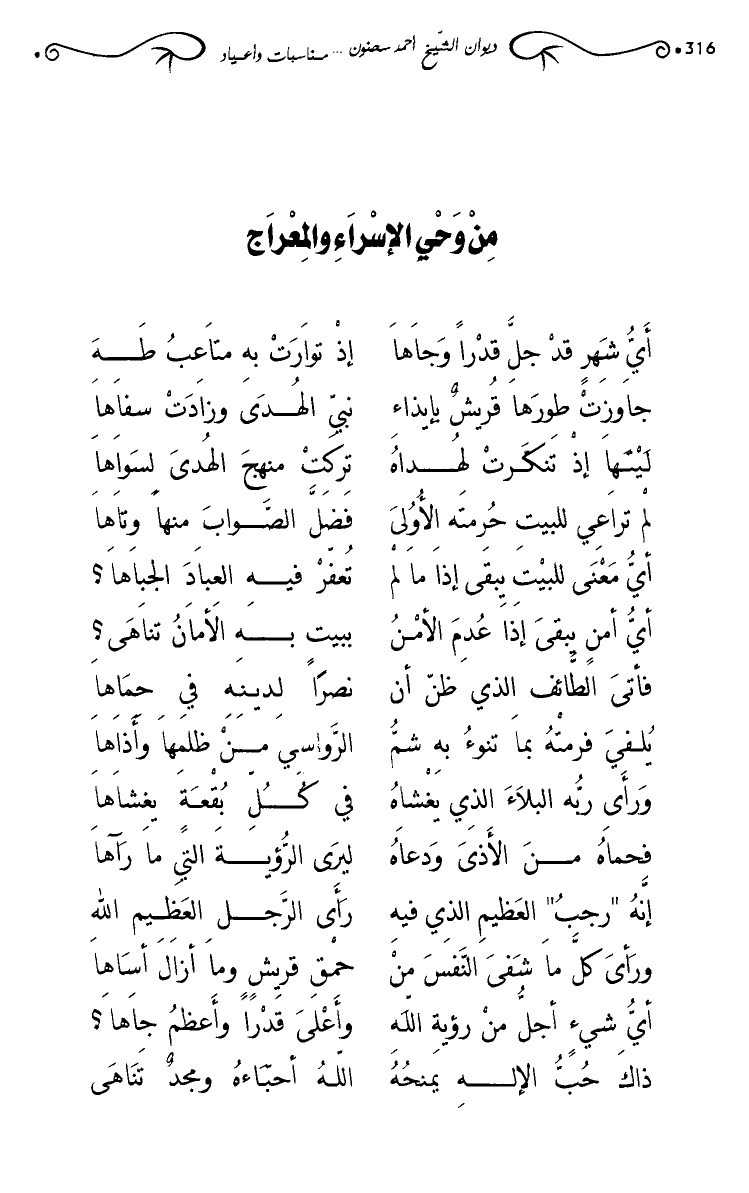 316 ديوان الشّيخ أحمد سحنون ... مناسبات وأعياد
مِنْ وَحْيِ الإسْرَاءِ والمِعْرَاجِ
أَيُّ شَهَرٍ قدْ جلَّ قدْراً وَجَاهَا إذْ توارَتْ به متَاعبُ طَـــهَ
جاوزتْ طورَها قُريشٌ بإيذاءِ نبيِّ الهُـــدَى وزادَتْ سفاها
لَيْتَها إذْ تنكَـرتْ لهُـــداهُ تركتْ منهجَ الهُدىَ لسَوَاها
لمْ تراعي للبيت حُرمته الأُولىَ فضَلَّ الصَّـــوابَ منهاً وتاها
أيُّ مَعْنَى للبيْت يبقى إذا ما لمْ تُعفّرْ فيـــه العبادَ الجباها؟
أيُّ أمنٍ يبقىَ إذَا عُدمَ الأمْنُ ببيت بـــه الأمانُ تناهَى؟
فأتىَ الطَّائف الذي ظنّ أن نصرًا لدينه في حمَاها
يُلـفيَ فرمتْهُ بما تنوءُ به شمُّ الرَّواسي مـــنْ ظلمها وأَذَاها
وَرأَى ربُّه البلاَءَ الذي يغْشاهُ في كُـــلِّ بُقْعَة يغشاها
فحماهُ مـــنَ الأَذىَ وَدعاهُ ليرَى الرُّؤيـــةَ التي ما رَآها
إنَّهُ "رجبُ" العَظيمِ الذي فيه رَأَى الرَّجـــل العَظـيم الله
ورأىَ كلَّ ما شَفىَ النَّفسَ مِنْ حمْقِ قريشٍ وما أزالَ أسَاها
أيُّ شيءٍ أجلُّ منْ رؤية اللَه وأَعْلىَ قدْرًا وأَعظمُ جاها؟
ذاكَ حُبُّ الإلـــهِ يمنحُهُ اللّهُ أحبّاءهُ ومجدٌ تنَاهَى